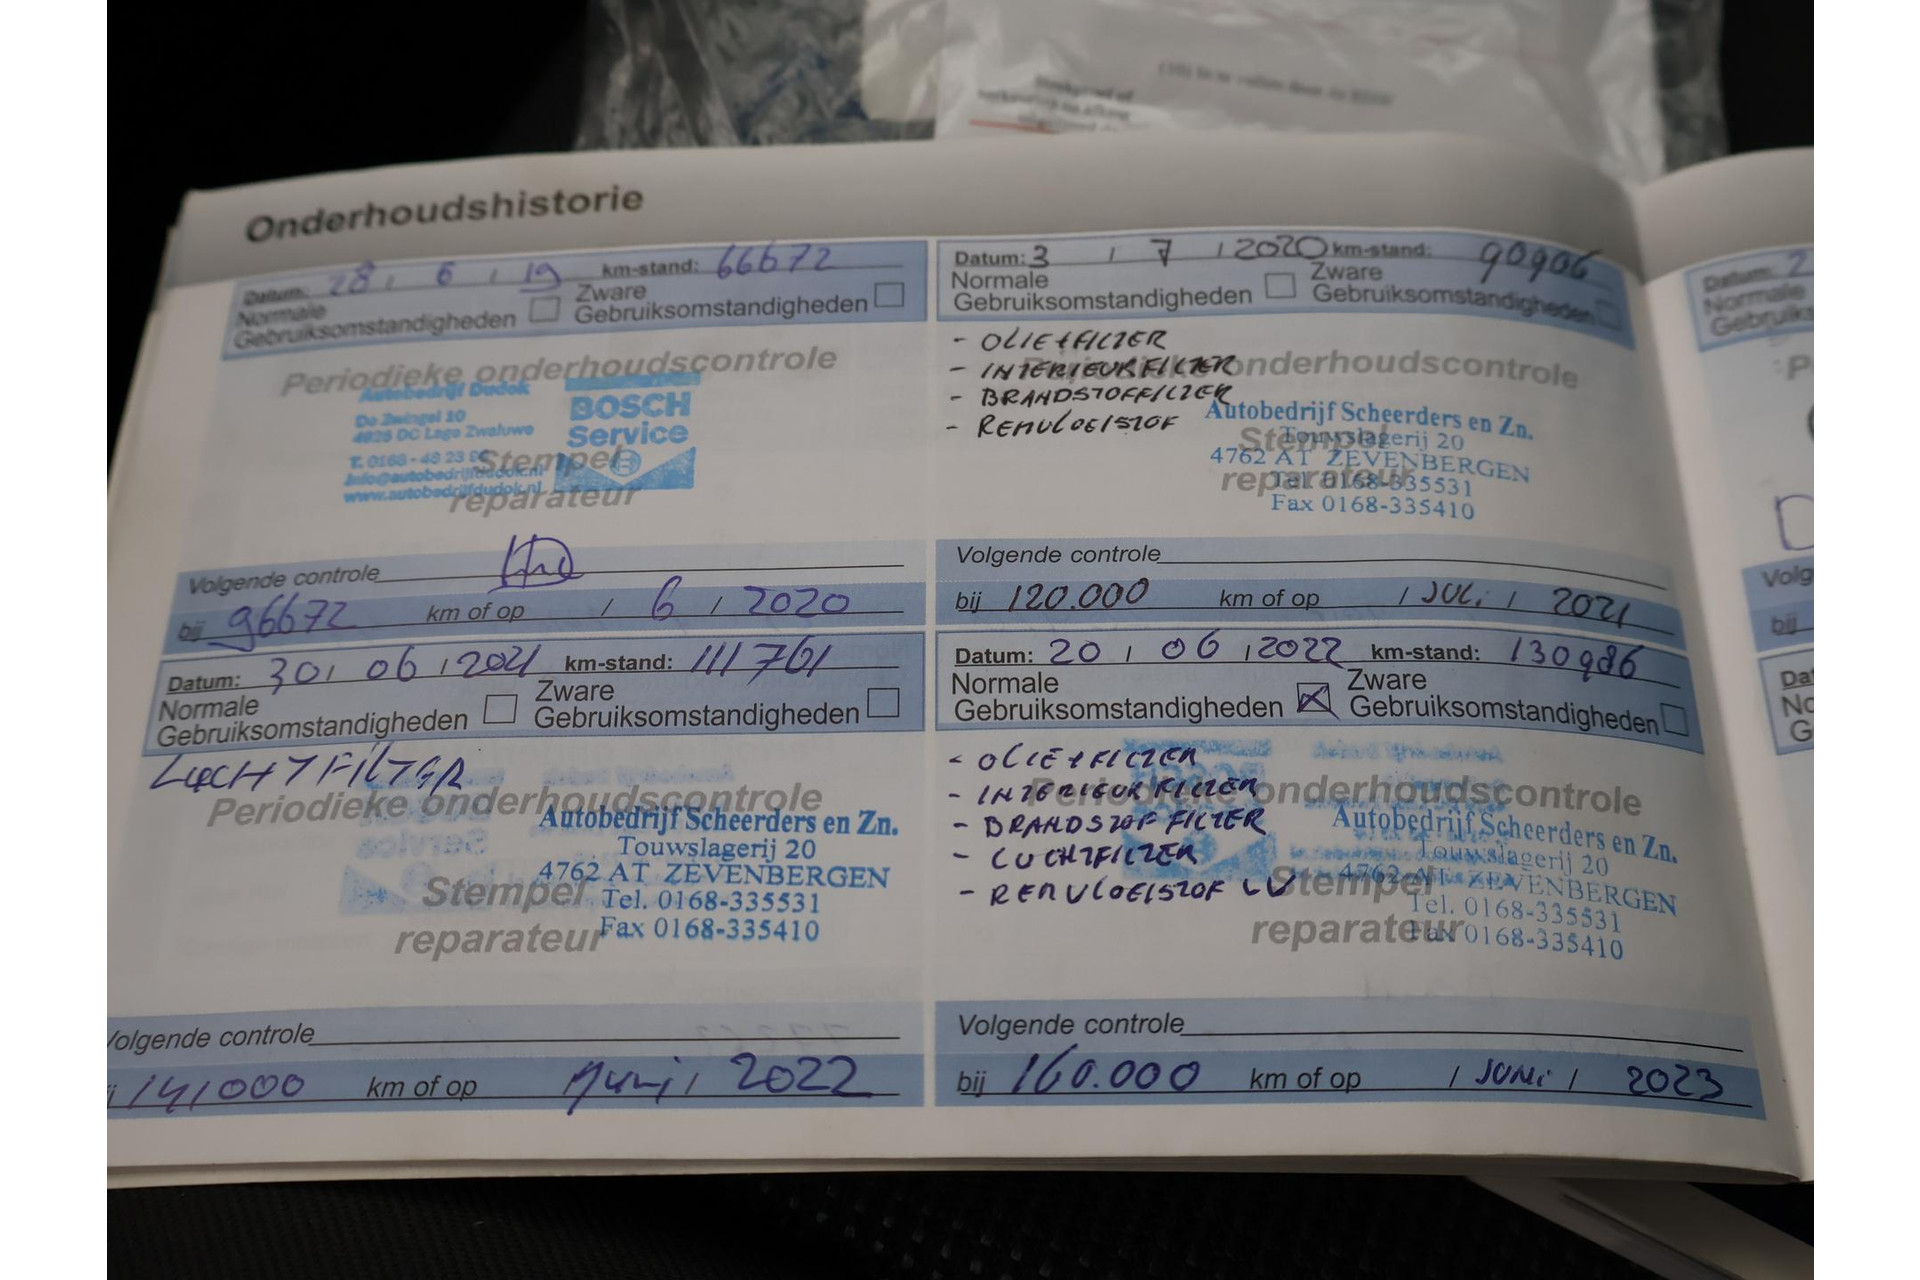 Onderhoudshistorie
Datum: 28 / 6 / 19 km-stand: 66672
Normale Gebruiksomstandigheden
Zware Gebruiksomstandigheden
Periodieke onderhoudscontrole
Autobedrijf Dudok
De Zwingel 10
4926 DC Lage Zwaluwe
T. 0168 - 48 23
info@autobedrijfdudok.nl
www.autobedrijfdudok.nl
BOSCH
Service
Stempel
reparateur
Volgende controle
bij 96672 km of op / 6 / 2020
Datum: 3 / 7 / 2020 km-stand: 90906
Normale Gebruiksomstandigheden
Zware Gebruiksomstandigheden
- OLIE + FILTER
- INTERIEURFILTER
- BRANDSTOFFILTER
- REMVLOEISTOF
Periodieke onderhoudscontrole
Autobedrijf Scheerders en Zn.
Touwslagerij 20
4762 AT ZEVENBERGEN
Tel. 0168-335531
Fax 0168-335410
Stempel
reparateur
Volgende controle
bij 120.000 km of op / JULI / 2021
Datum: 30 / 06 / 2021 km-stand: 111761
Normale Gebruiksomstandigheden
Zware Gebruiksomstandigheden
LUCHTFILTER
Periodieke onderhoudscontrole
Autobedrijf Scheerders en Zn.
Touwslagerij 20
4762 AT ZEVENBERGEN
Tel. 0168-335531
Fax 0168-335410
Stempel
reparateur
Volgende controle
141000 km of op Juni / 2022
Datum: 20 / 06 / 2022 km-stand: 130986
Normale Gebruiksomstandigheden
Zware Gebruiksomstandigheden
- OLIE + FILTER
- INTERIEURFILTER
- BRANDSTOFFILTER
- LUCHTFILTER
- REMVLOEISTOF
Periodieke onderhoudscontrole
Autobedrijf Scheerders en Zn.
Touwslagerij 20
4762 AT ZEVENBERGEN
Tel. 0168-335531
Fax 0168-335410
Stempel
reparateur
Volgende controle
bij 160.000 km of op / JUNI / 2023